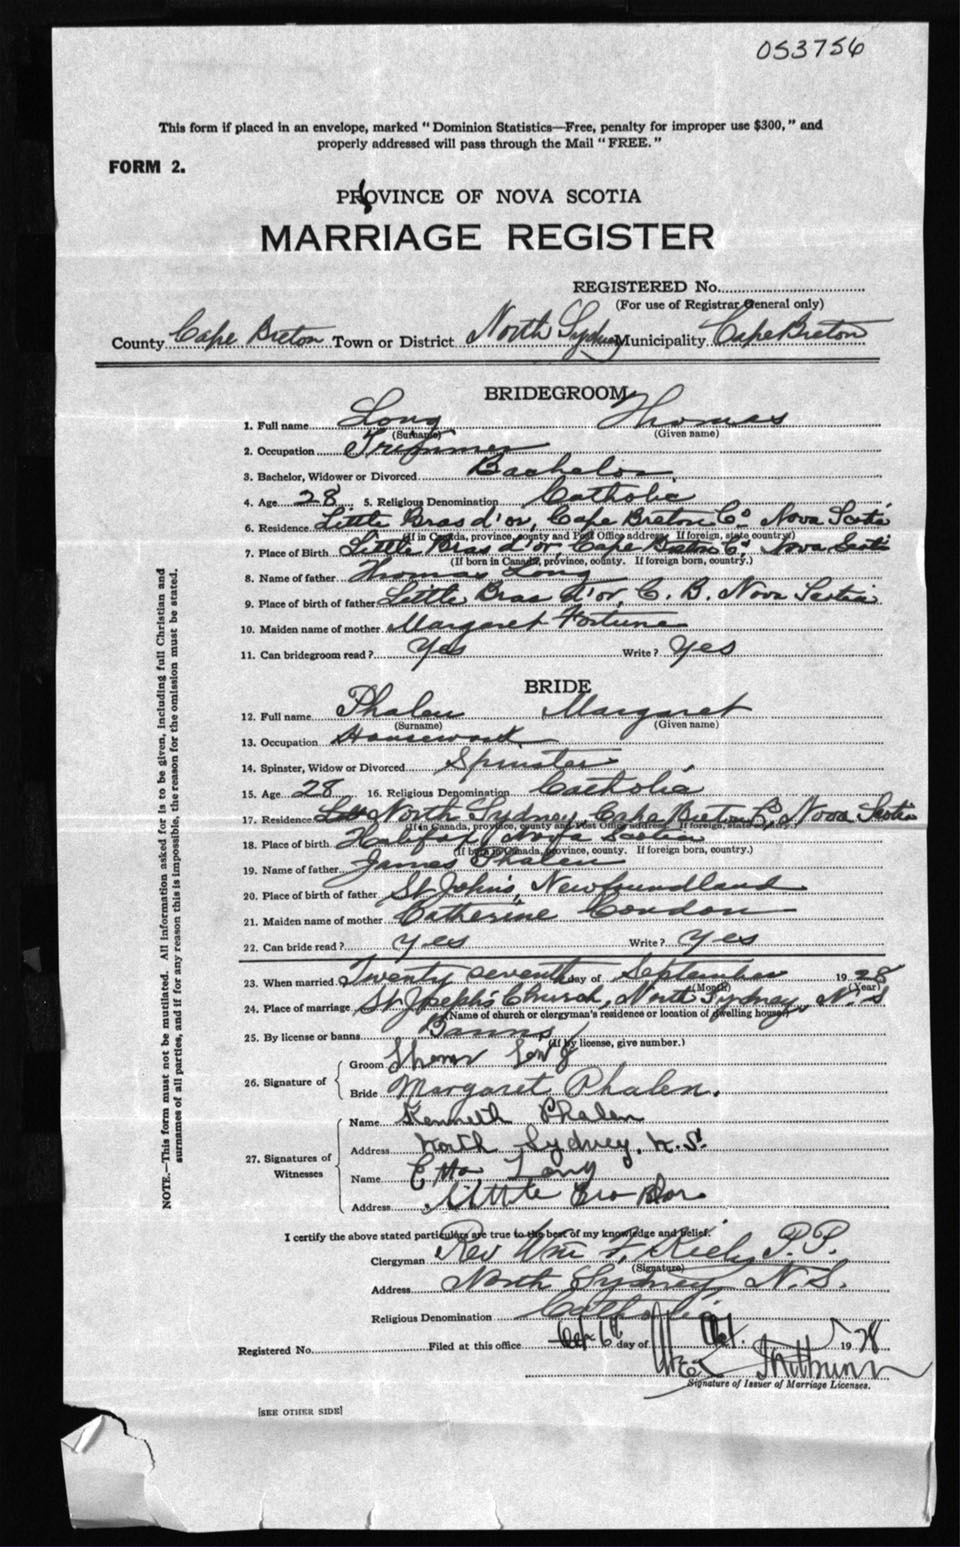 053756
This form if placed in an envelope, marked "Dominion Statistics—Free, penalty for improper use $300," and
properly addressed will pass through the Mail "FREE."
FORM 2.
PROVINCE OF NOVA SCOTIA
MARRIAGE REGISTER
REGISTERED No.
(For use of Registrar General only)
County Cape Breton Town or District North Sydney Municipality Cape Breton
BRIDEGROOM
1. Full name Long Thomas
(Surname) (Given name)
2. Occupation Trimmer
3. Bachelor, Widower or Divorced Bachelor
4. Age 28 5. Religious Denomination Catholic
6. Residence Little Bras d'or, Cape Breton Co Nova Scotia
(If in Canada, province, county and Post Office address. If foreign, state country)
7. Place of Birth Little Bras d'or, Cape Breton Co, Nova Scotia
(If born in Canada, province, county. If foreign born, country.)
8. Name of father Thomas Long
9. Place of birth of father Little Bras d'or, C. B. Nova Scotia
10. Maiden name of mother Margaret Fortune
11. Can bridegroom read? Yes Write? Yes
BRIDE
12. Full name Phalen Margaret
(Surname) (Given name)
13. Occupation Housework
14. Spinster, Widow or Divorced Spinster
15. Age 28 16. Religious Denomination Catholic
17. Residence North Sydney, Cape Breton Co, Nova Scotia
(If in Canada, province, county and Post Office address. If foreign, state country.)
18. Place of birth Halifax, Nova Scotia
(If born in Canada, province, county. If foreign born, country.)
19. Name of father James Phalen
20. Place of birth of father St John's, Newfoundland
21. Maiden name of mother Catherine Condon
22. Can bride read? Yes Write? Yes
23. When married Twenty seventh day of September 1928
(Month) (Year)
24. Place of marriage St Joseph's Church, North Sydney, N. S
(Name of church or clergyman's residence or location of dwelling house)
25. By license or banns Banns
(If by license, give number.)
26. Signature of
Groom Thomas Long
Bride Margaret Phalen.
27. Signatures of Witnesses
Name Kenneth Phalen
Address North Sydney, N.S.
Name Etta Long
Address Little Bra Dor
I certify the above stated particulars are true to the best of my knowledge and belief.
Clergyman Rev Wm F. P.P.
(Signature)
Address North Sydney N.S.
Religious Denomination Catholic
Registered No. Filed at this office 6th day of Oct. 1928
Signature of Issuer of Marriage Licenses.
[SEE OTHER SIDE]
NOTE.—This form must not be mutilated. All information asked for is to be given, including full Christian and
surnames of all parties, and if for any reason this is impossible, the reason for the omission must be stated.